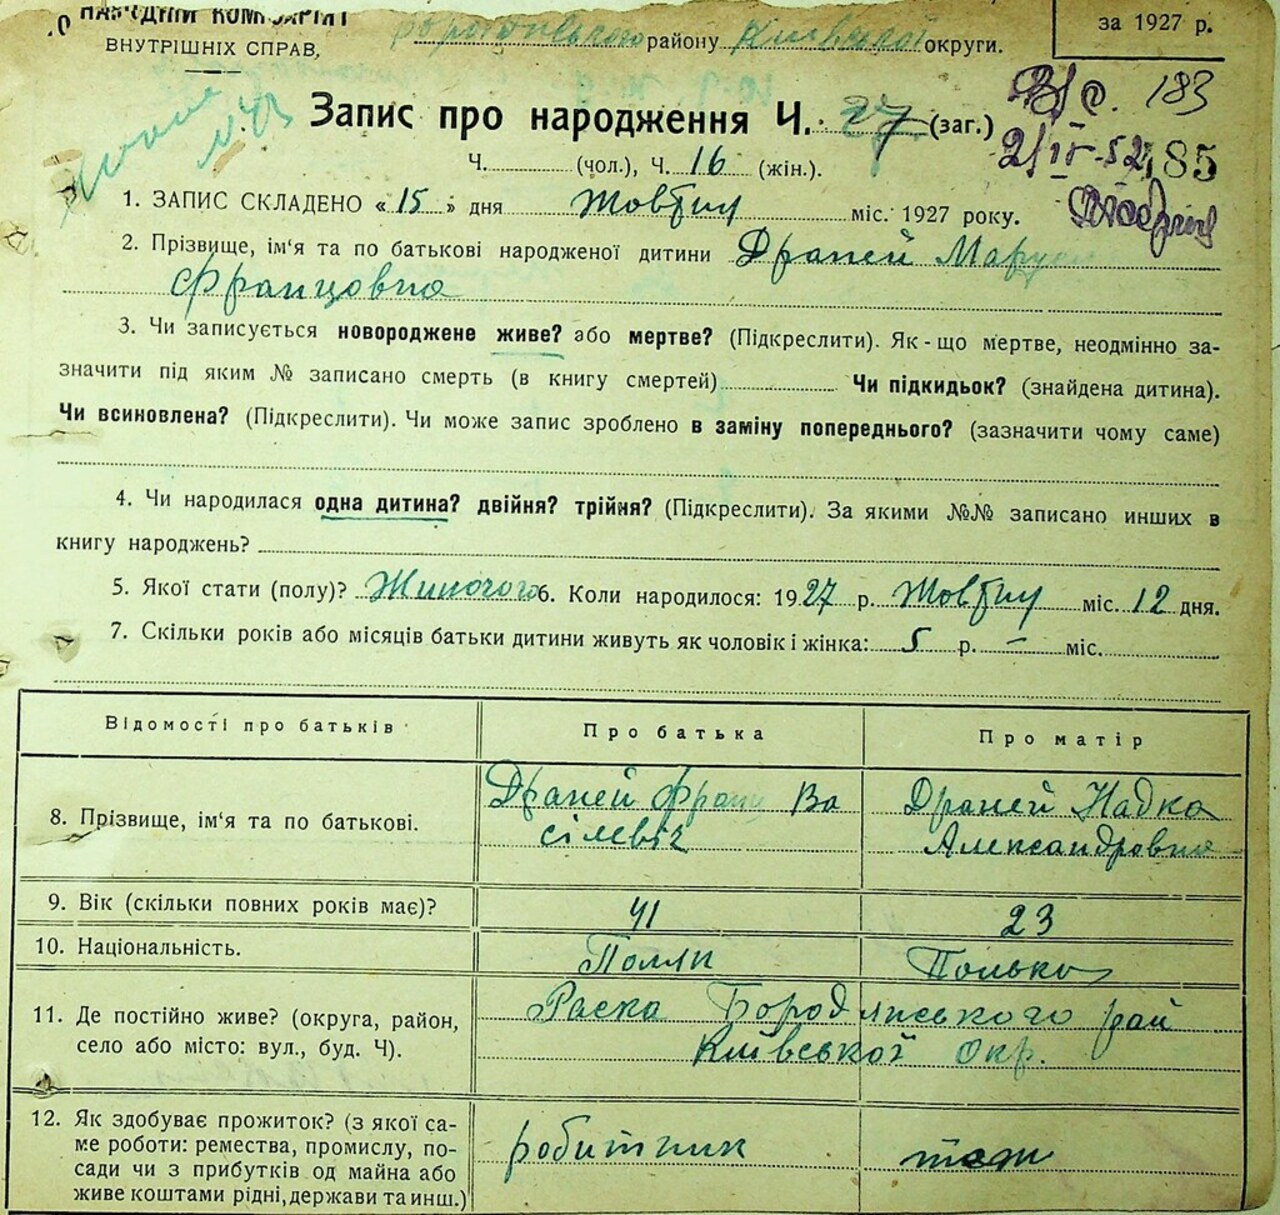 НАРОДНІЙ КОМІСАРІЯТ
ВНУТРІШНІХ СПРАВ,
району Київської округи.
за 1927 р.
Запис про народження Ч. 27 (заг.)
183
Ч. (чол.), Ч. 16 (жін.).
2/IV-52
185
1. ЗАПИС СКЛАДЕНО « 15 » дня Жовтня міс. 1927 року.
2. Прізвище, ім'я та по батькові народженої дитини Драпей
Францовна
3. Чи записується новороджене живе? або мертве? (Підкреслити). Як-що мертве, неодмінно за-
значити під яким № записано смерть (в книгу смертей) Чи підкидьок? (знайдена дитина).
Чи всиновлена? (Підкреслити). Чи може запис зроблено в заміну попереднього? (зазначити чому саме)
4. Чи народилася одна дитина? двійня? трійня? (Підкреслити). За якими №№ записано инших в
книгу народжень?
5. Якої стати (полу)? Жиночого 6. Коли народилося: 1927 р. Жовтня міс. 12 дня.
7. Скільки років або місяців батьки дитини живуть як чоловік і жінка: 5 р. – міс.
Відомості про батьків
Про батька
Про матір
8. Прізвище, ім'я та по батькові.
Драпей Франц Ва
сілевіч
Драпей Надка
Александровна
9. Вік (скільки повних років має)?
41
23
10. Національність.
Поляк
Полька
11. Де постійно живе? (округа, район,
село або місто: вул., буд. Ч).
Раска Бородянського рай
Київської Окр.
12. Як здобуває прожиток? (з якої са-
ме роботи: ремества, промислу, по-
сади чи з прибутків од майна або
живе коштами рідні, держави та инш.)
робитник